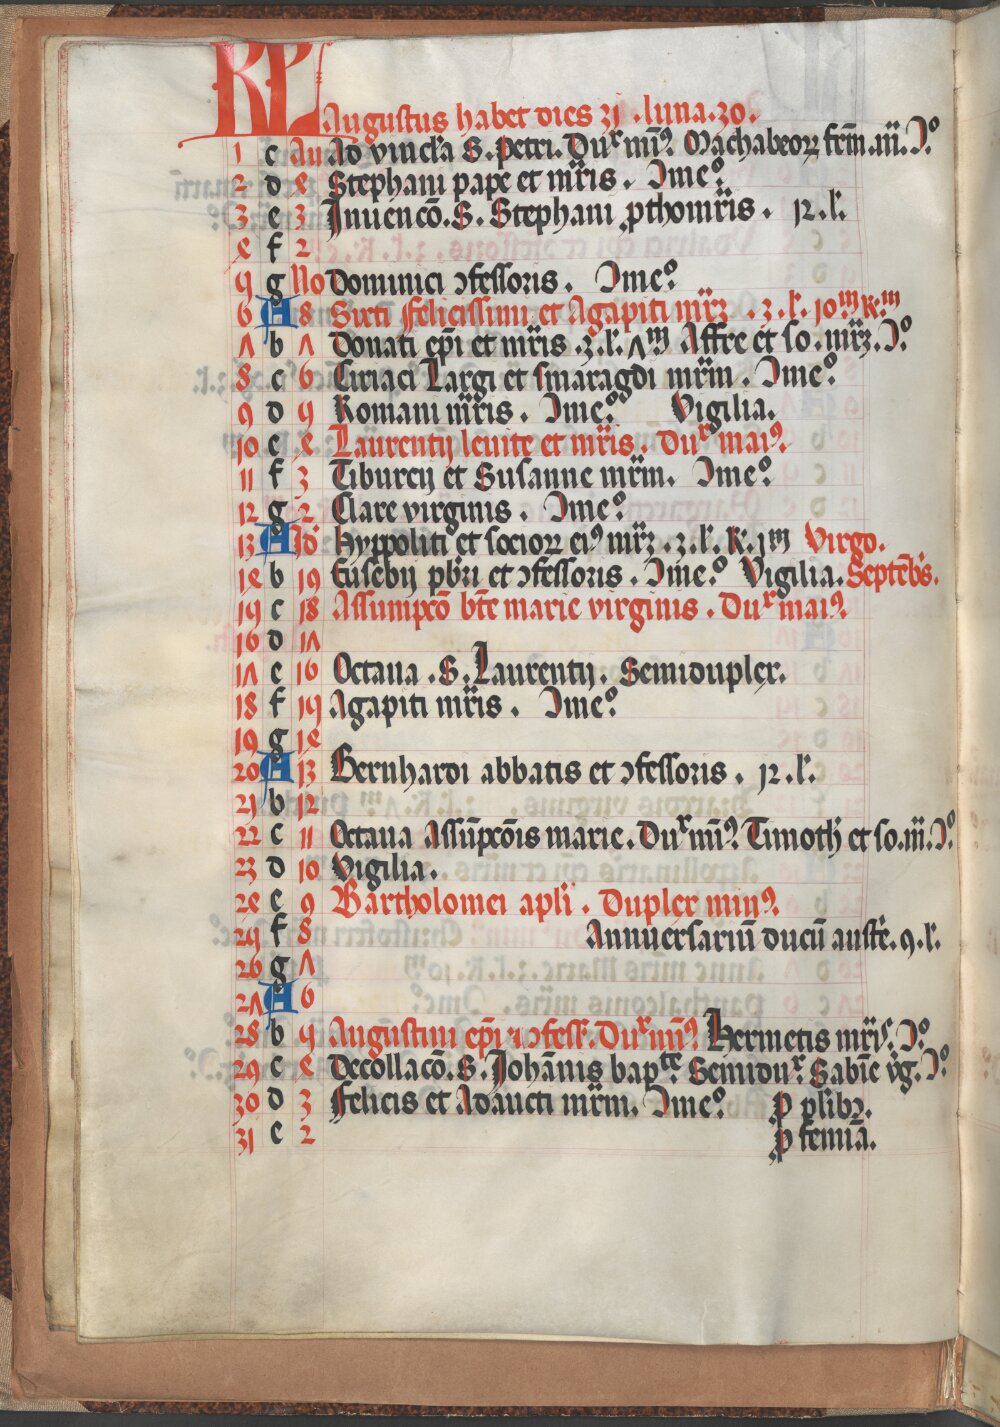 KL Augustus habet dies 31 . luna . 30 .
1 c Au Ad vincła S. petri. Duʳ miꝰ. Machabeoꝝ frm̄. iii. Dº
2 d 4 Stephani pape et mr̄is . Dmeº
3 e 3 Inuencō. S. Stephani ꝓthomr̄is . 12 . l̄.
4 f 2
5 g No Dominici ↄfessoris . Dmeº
6 A 8 Sixti felicissimi et Agapiti mr̄ꝝ . 3 . l̄. 10ᵐ R.ᵐ
7 b 7 Donati ep̄i et mr̄is . 3 . l̄. 7ᵐ Affre et so . mr̄ꝝ . Dº
8 c 6 Ciriaci Largi et smaragdi mr̄m . Dmeº
9 d 5 Romani mr̄is . Dmeº Vigilia.
10 e 4 Laurentij leuite et mr̄is . Duʳ maiꝰ
11 f 3 Tiburcij et Susanne mr̄m . Dmeº
12 g 2 Clare virginis . Dmeº
13 A Id Hyppoliti et socioꝝ eiꝰ mr̄ꝝ . 3 . l̄. R. 1ᵐ Virgo.
14 b 19 Eusebij pb̄ri et ↄfessoris . Dmeº Vigilia. Septēb̄s.
15 c 18 Assumpcō bt̄e marie virginis . Duʳ maiꝰ
16 d 17
17 e 16 Octaua . S. Laurentij . Semidupler.
18 f 15 Agapiti mr̄is . Dmeº
19 g 14
20 A 13 Bernhardi abbatis et ↄfessoris . 12 . l̄.
21 b 12
22 c 11 Octaua Assūpcōis marie . Duʳ miꝰ. Timoth̄ et so. m̄. Dº
23 d 10 Vigilia .
24 e 9 Bartholomei apl̄i . Dupler minꝰ
25 f 8 Anniuersariū ducū austr̄. 9 . l̄.
26 g 7
27 A 6
28 b 5 Augustini ep̄i ⁊ ↄfess̄. Duʳ miꝰ Hermetis mr̄is. Dº
29 c 4 Decollacō. S. Johānis bapᵗᵉ Semiduʳ Sabīe v̄g. Dº
30 d 3 Felicis et Adaucti mr̄m. Dmeº ꝓ plibꝫ.
31 e 2 ꝓ femīa.